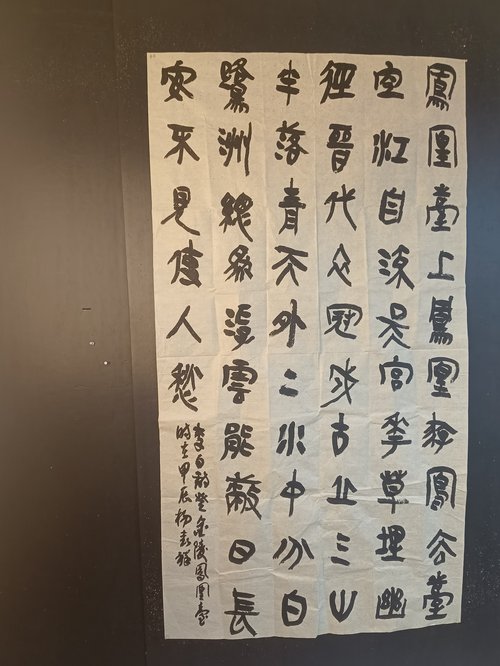 鳳凰臺上鳳凰遊鳳去臺
空江自流吳宮花草埋幽
徑晉代衣冠成古丘三山
半落青天外二水中分白
鷺洲總為浮雲能蔽日長
安不見使人愁
李白詩登金陵鳳凰臺
時在甲辰楊春